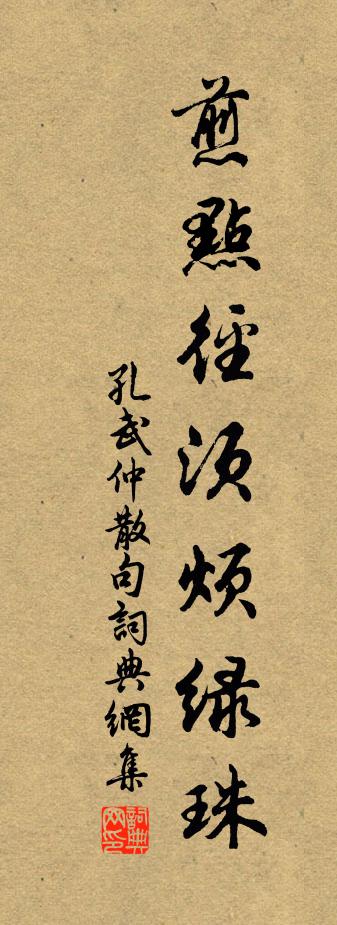 煎點徑須煩綠珠
孔武仲散句詞典網集
詞典網印